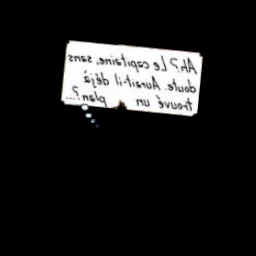 Ah? Le capitaine, sans
doute. Aurait-il déjà
trouvé un plan?...